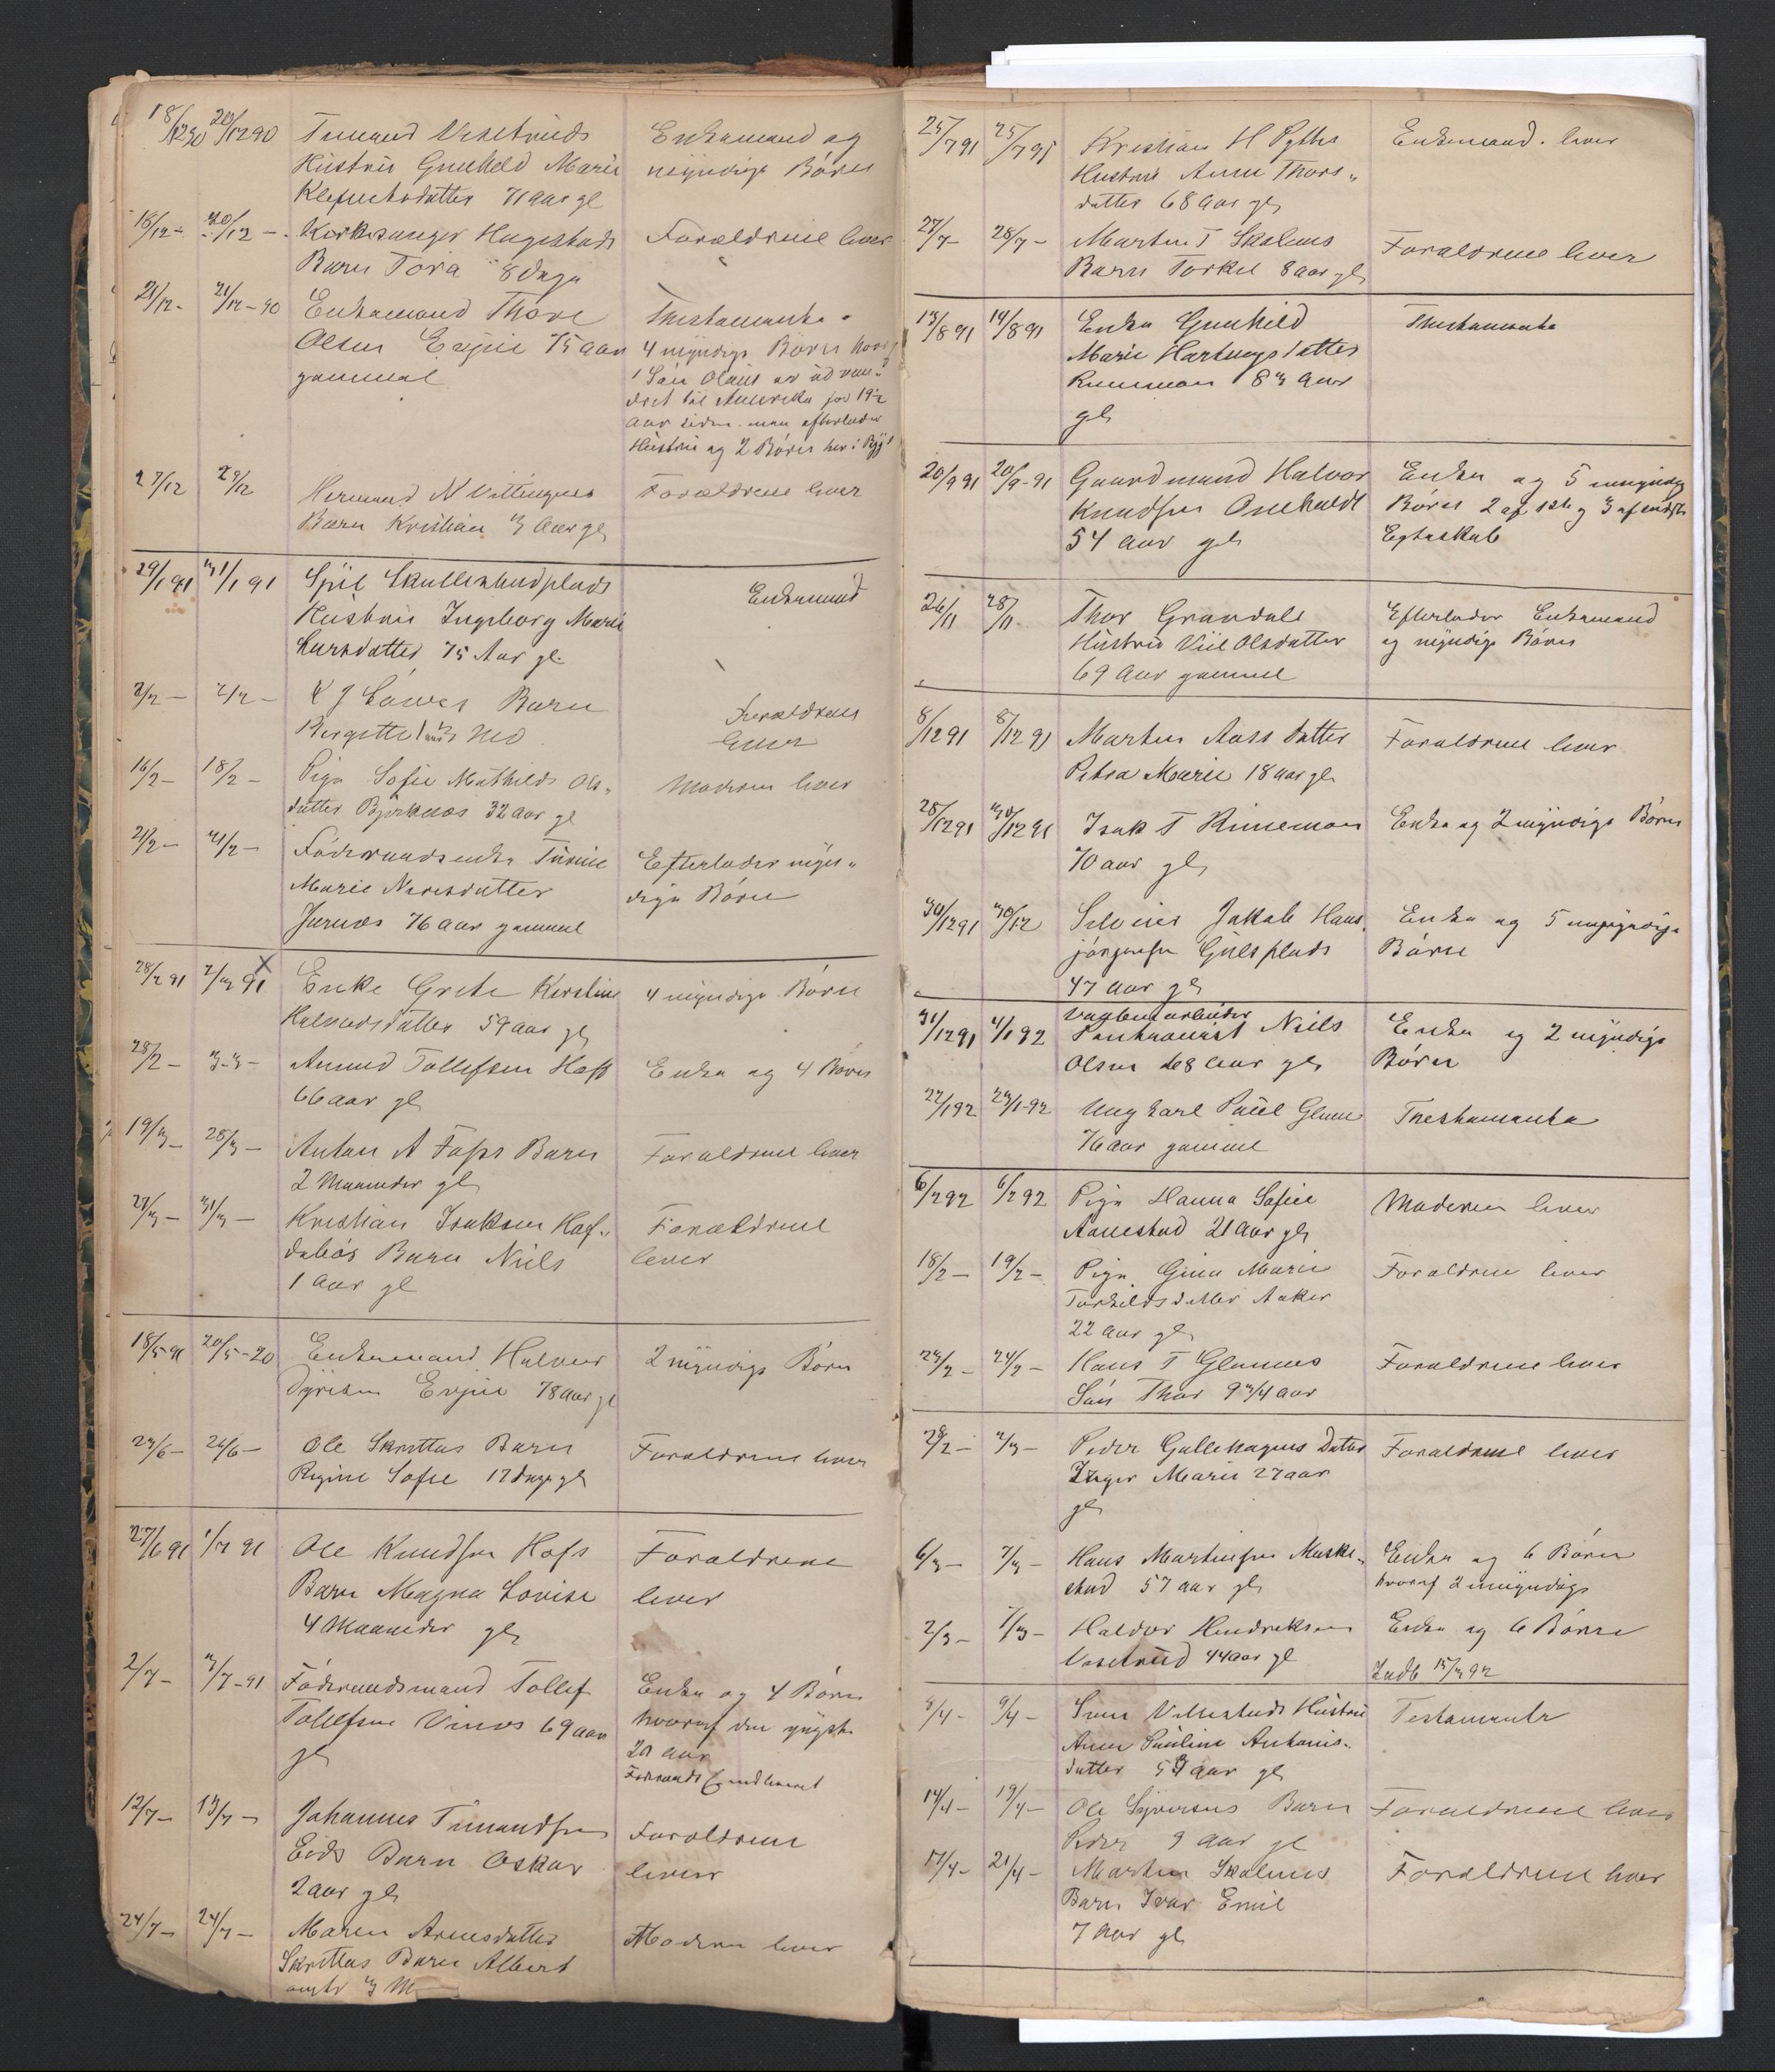 18/12 90 20/12 90 Tr Veseteruds Enkemand og
Hustru Gunhild Marie myndige Børn
datter 71 aar gl
18/12 - 20/12 - Kirkesanger Hagestads Forældrene lever
Barn Tora 8 Dage
21/12 - 21/12 - 90 Enkemand Thore Thestamenta
Olsen Evjue 75 aar 4 myndige Børn hvoraf
gammel 1 Søn Olaus er udvan„
dret til Amerika for 19½
aar siden. man efterlader
Hustru og 2 Børn her i Byg
27/12 29/12 Hermand N Vittingnes Forældrene lever
Barn Kristian 3 Aar gl
29/1 91 31/1 91 Enkemand
Hustru Ingeborg Marie
Larsdatter 75 Aar gl.
2/2 - 2/2 - K J Barn Forældrene
Birgitte Md lever
16/2 - 18/2 - Pige Sofie Mathilde Ols„ Moderen lever
datter Bjørknæs 32 aar gl
21/2 - 21/2 - Føderaadsenke Turine Efterlader myn„
Marie Nirisdatter dige Børn
Jurnæs 76 aar gammel
28/2 91 2/3 91 Enke Grete Kirstine 4 myndige Børn
Halvorsdatter 59 aar gl
28/2 - 3-3- Amund Tollefsen Hoff Enke og 4 Børn
66 aar gl
19/3 - 28/3 - Anton A Foss Barn Forældrene lever
2 Maaneder gl
27/3 - 31/3 - Kristian Isaksen Haf„ Forældrene
dabøs Barn Niels lever
1 aar gl
18/5 91 20/5 - 20 Enkemand Halvor 2 myndige Børn
Dyresen Evjue 78 aar gl
23/6 - 26/6 - Ole Skrettas Barn Forældrene lever
Regine Sofie 17 dage gl
27/6 91 1/7 91 Ole Knudsen Hofs Forældrene
Barn Magna Lovise lever
4 Maaneder gl
2/7 - 3/7 - 91 Føderaadsmand Tollef Enke og 4 Børn
Tollefsen Vinæs 69 aar hvoraf den yngste
gl 20 aar
12/7 - 13/7 - Johannes Timandsen Forældrene
Eids Barn Oskar lever
2 aar gl
24/7 - 24/7 - Maren Arnesdatter Moderen lever
Skrettas Barn Albert
3 M
25/7 91 25/7 91 Kristian H Pyttes Enkemand lever
Hustru Anne Thors„
datter 68 Aar gl
27/7 - 28/7 - Marten T Skalnes Forældrene lever
Barn Torkel 8 aar gl
13/8 91 14/8 91 Enke Gunhild Thestamenta
Marie Hartvigsdatter
83 Aar
gl
20/9 91 20/9 - 91 Gaardmand Halvor Enke og 5 umyndig
Knudsen Aneholdt Børn 2 af 1ste og 3 af andet
54 aar gl Egteskab
26/11 28/11 Thor Grandals Efterlader Enkemand
Hustru Viil Olsdatter og myndige Børn
69 Aar gammel
8/12 91 8/12 91 Marten Aass Datter Forældrene lever
Petra Marie 18 aar gl
28/12 91 30/12 91 Isak T Rinemoen Enke og 2 myndige Børn
70 aar gl
30/12 91 30/12 Selveier Jakob Hans Enke og 5 umyndige
jørgensen Gulsplads Børn
47 aar gl
Vagtenarbeider
31/12 91 4/1 92 Niels Enke og 2 myndige
Olsen 68 aar gl Børn
22/1 92 23/1-92 Ungkarl Paul Glenne Thestamenta
76 aar gammel
6/2 92 6/2 92 Pige Hanna Sofie Moderen lever
Aanestad 21 aar gl
18/2 - 19/2 - Pige Gina Marie Forældrene lever
Torkeldsdatter Aaker
22 aar gl
23/2 - 24/2 - Hans T Glennes Forældrene lever
Søn Thor 9 3/4 aar
28/2 - 2/3 - Peder Gullehagens Datter Forældrene lever
Inger Marie 27 aar
gl
6/3 - 7/3 - Hans Martinsen Muske„ Enke og 6 Børn
stad 57 aar gl hvoraf 2 umyndige
2/3 - 7/3 - Haldor Hendriksen Enke og 6 Børn
Veseterud 44 aar gl Indb 15/3 92
8/4 - 9/4 - Sven Villestads Hustru Testamente
Anne Pauline Antonis„
datter aar gl
14/4 - 19/4 - Ole Syversens Barn Forældrene lever
Peder 9 aar gl
17/4 - 21/4 - Marten Skalnes Forældrene lever
Barn Ivar Emil
7 aar gl